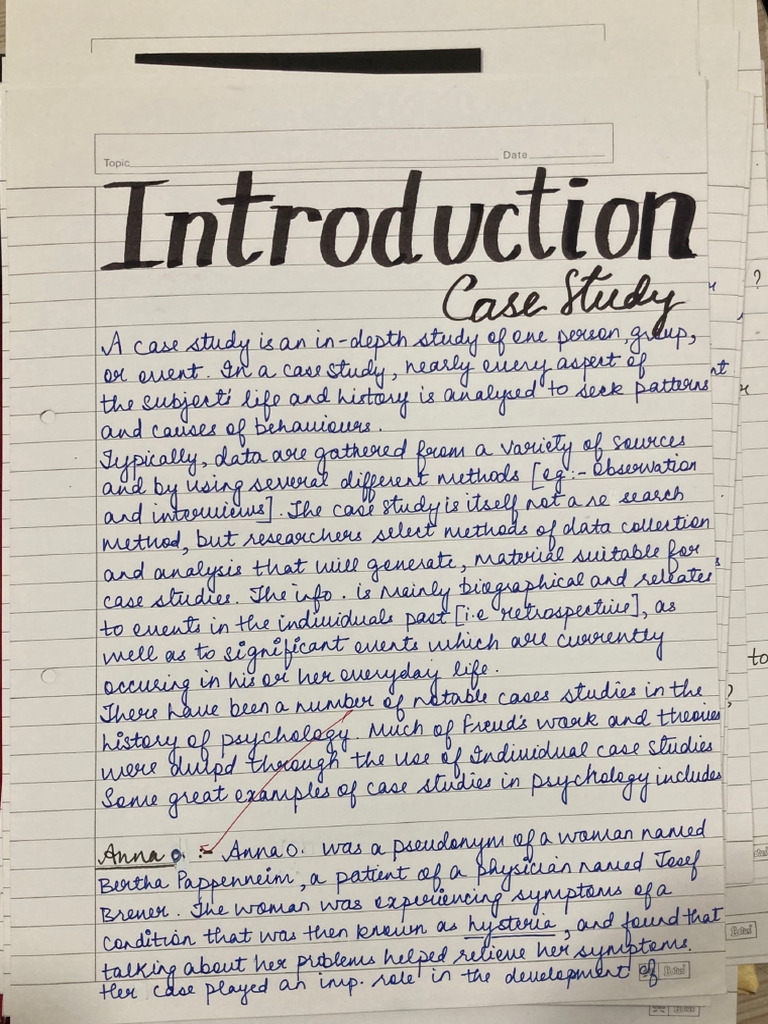 Topic
Date
Introduction
Case Study
A case study is an in-depth study of one person, group,
or event. In a case study, nearly every aspect of
the subject's life and history is analysed to seek patterns
and causes of behaviours.
Typically, data are gathered from a variety of sources
and by using several different methods [eg:- Observation
and interviews]. The case study is itself not a re search
method, but researchers select methods of data collection
and analysis that will generate, material suitable for
case studies. The info. is mainly biographical and releates
to events in the individuals past [i.e retrospective], as
well as to significant events which are currently
occuring in his or her everyday life.
There have been a number of notable cases studies in the
history of psychology. Much of Freud's work and theories
were dvlp'd through the use of Individual case studies
Some great examples of case studies in psychology includes
Anna o. :- Anna O. was a pseudonym of a woman named
Bertha Pappenheim, a patient of a physician named Josef
Brener. The woman was experiencing symptoms of a
condition that was then known as hysteria, and found that
talking about her problems helped relieve her symptoms.
Her case played an imp. role in the development of